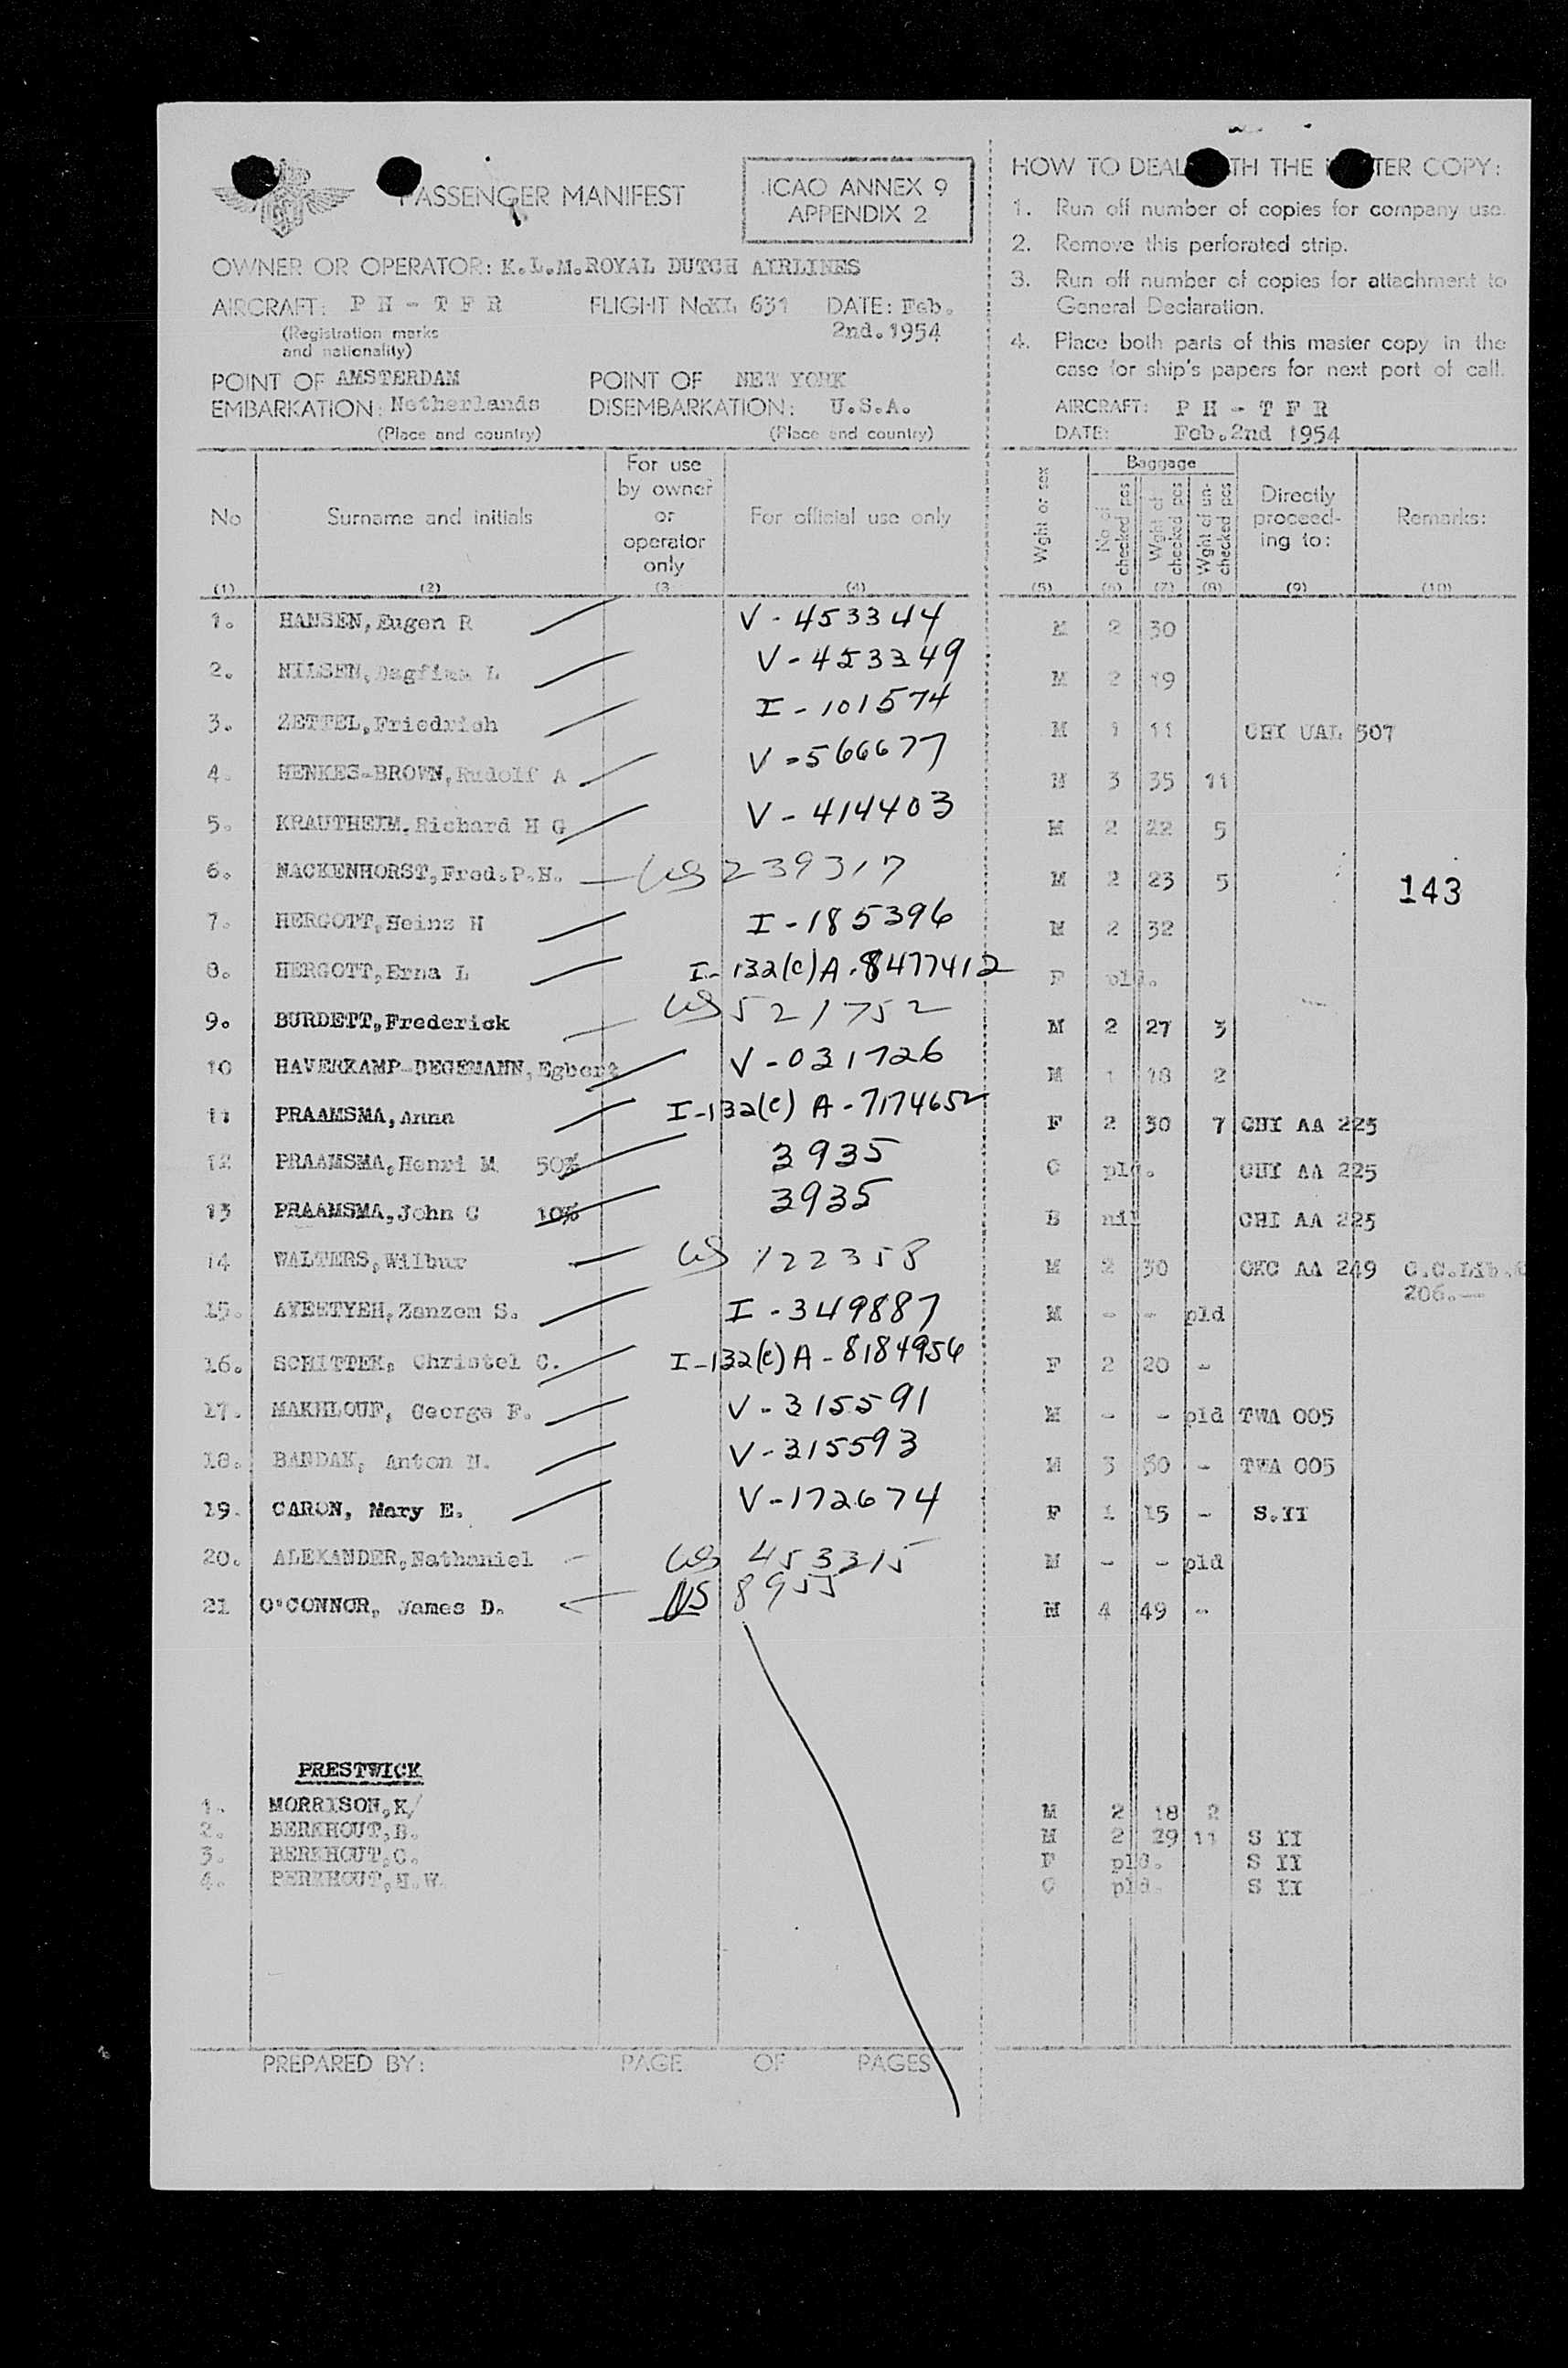 PASSENGER MANIFEST
ICAO ANNEX 9
APPENDIX 2
OWNER OR OPERATOR: K.L.M. ROYAL DUTCH AIRLINES
AIRCRAFT: P H - T F R FLIGHT No KL 631 DATE: Feb.
(Registration marks 2nd.1954
and nationality)
POINT OF AMSTERDAM POINT OF NEW YORK
EMBARKATION: Netherlands DISEMBARKATION: U.S.A.
(Place and country) (Place and country)
HOW TO DEAL TH THE TER COPY:
1. Run off number of copies for company use.
2. Remove this perforated strip.
3. Run off number of copies for attachment to
General Declaration.
4. Place both parts of this master copy in the
case for ship's papers for next port of call.
AIRCRAFT: P H - T F R
DATE: Feb.2nd 1954
No Surname and initials For use by owner or operator only For official use only Wght or sex Baggage No of checked pcs Wght of checked pcs Wght of un-checked pcs Directly proceed-ing to: Remarks:
(1) (2) (3 (4) (5) (6) (7) (8) (9) (10)
1. HANSEN, Eugen R V - 453344 M 2 30
2. NILSEN, Dagfinn L V - 453349 M 2 19
3. ZETTEL, Friedrich I - 101574 M 1 11 CHI UAL 507
4. HENKES-BROWN, Rudolf A V - 566677 M 3 35 11
5. KRAUTHEIM, Richard H G V - 414403 M 2 22 5
6. NACKENHORST, Fred.P.H. US 239317 M 2 23 5
143
7. HERGOTT, Heinz H I - 185396 M 2 32
8. HERGOTT, Erna L I - 132(c) A - 8477412 F pld.
9. BURDETT, Frederick US 521752 M 2 27 3
10 HAVERKAMP-BEGEMANN, Egbert V - 031726 M 1 18 2
11 PRAAMSMA, Anna I - 132(c) A - 7174652 F 2 30 7 CHI AA 225
12 PRAAMSMA, Henri M 50% 3935 C pld. CHI AA 225
13 PRAAMSMA, John C 10% 3935 B nil CHI AA 225
14 WALTERS, Wilbur US 122358 M 2 30 OKC AA 249 C.C.Lib.
206.--
15. AYEETYEH, Zanzem S. I - 349887 M - - pld
16. SCHITTEK, Christel C. I - 132(c) A - 8184956 F 2 20 -
17. MAKHLOUF, George F. V - 315591 M - - pld TWA 005
18. BANDAK, Anton N. V - 315593 M 3 30 - TWA 005
19. CARON, Mary E. V - 172674 F 1 15 - S.II
20. ALEXANDER, Nathaniel US 453315 M - - pld
21 O'CONNOR, James D. NS 8955 M 4 49 -
PRESTWICK
1. MORRISON, K/ M 2 18 2
2. BERKHOUT, B. M 2 29 11 S II
3. BERKHOUT, C. F pld. S II
4. BERKHOUT, H.W. C pld. S II
PREPARED BY: PAGE OF PAGES